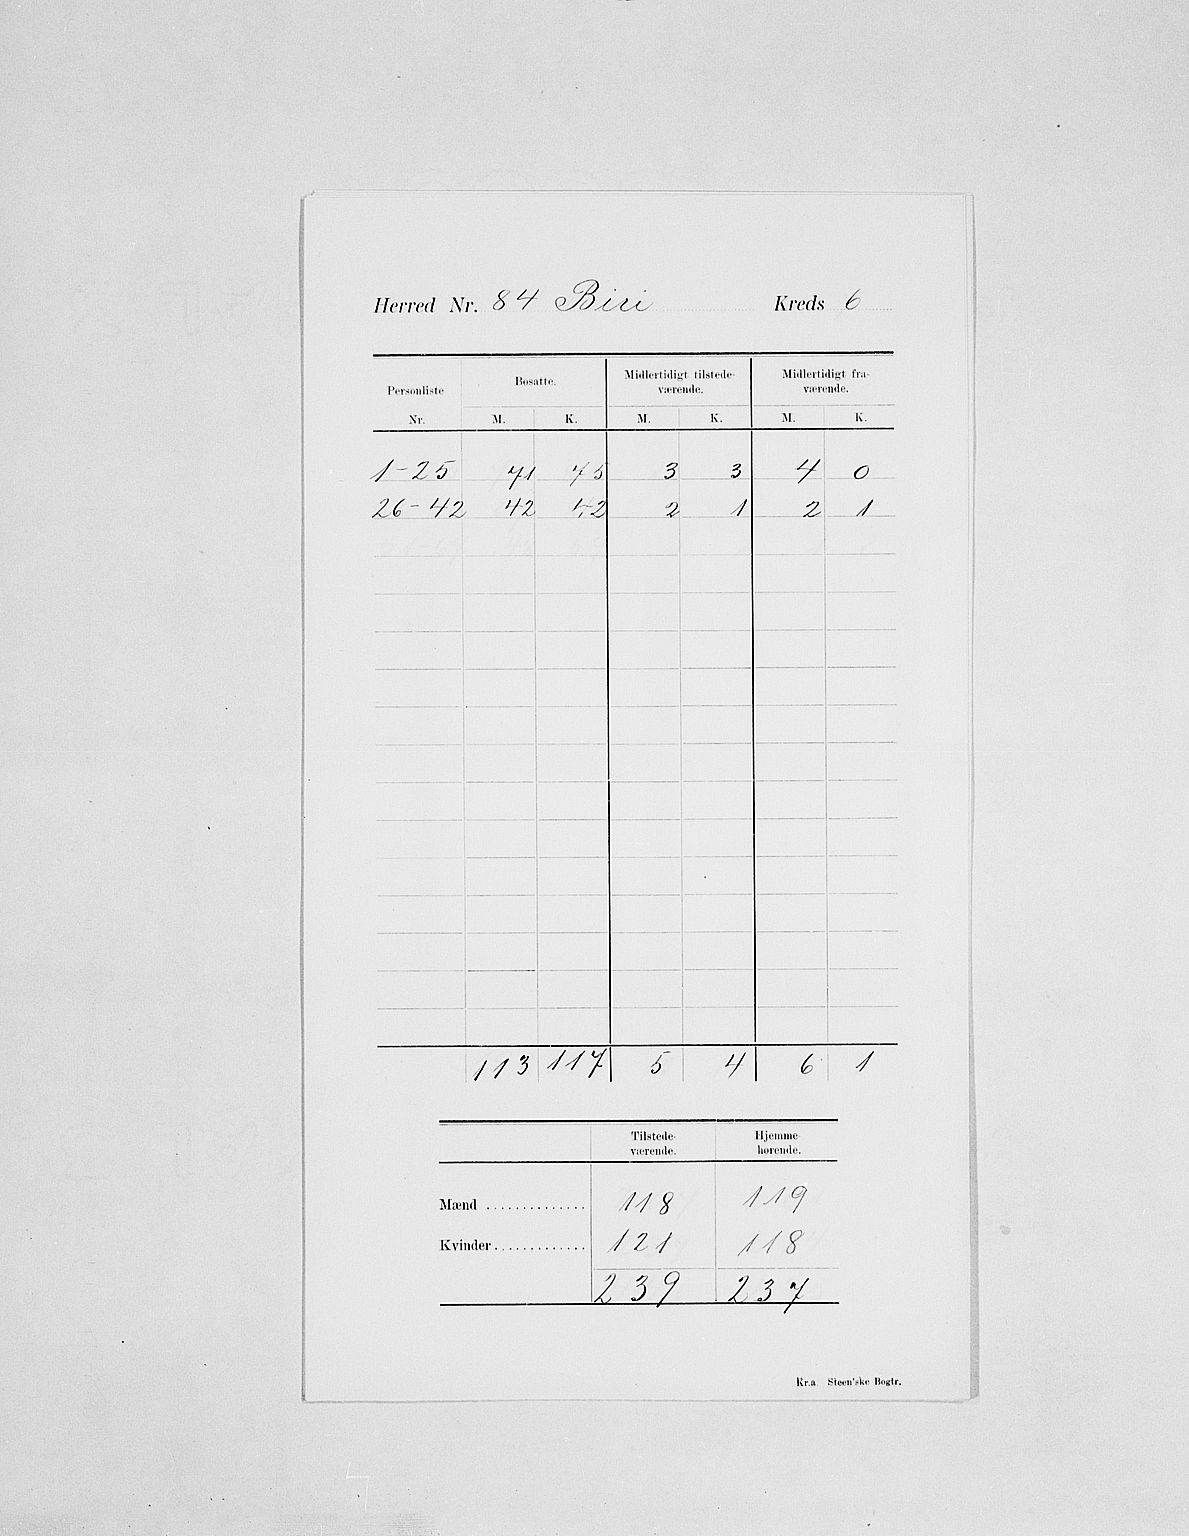 Herred Nr. 84 Biri Kreds 6
Personliste Nr. Bosatte. Midlertidigt tilstede-værende. Midlertidigt fra-værende.
M. K. M. K. M. K.
1-25 71 75 3 3 4 0
26-42 42 42 2 1 2 1
113 117 5 4 6 1
Tilstede-værende. Hjemme-hørende.
Mænd .............. 118 119
Kvinder............. 121 118
239 237
Kr.a Steen'ske Bogtr.